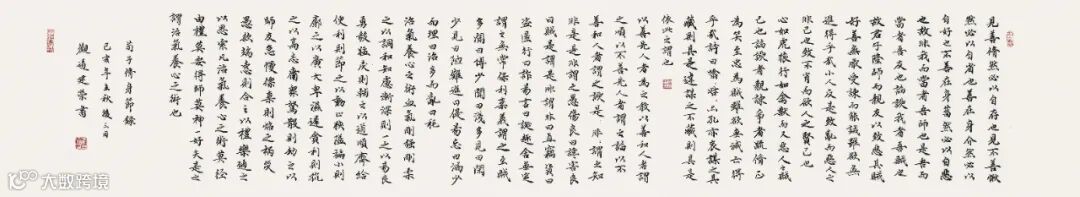 見善脩然必以自存也見不善愀
然必以自省也善在身介然必以
自好也不善在身菑然必以自惡
也故非我而當者吾師也是吾而
當者吾友也諂諛我者吾賊也
故君子隆師而親友以致惡其賊
好善無厭受諫而能誡雖欲無
進得乎哉小人反是致亂而惡人之
非己也致不肖而欲人之賢己也
心如虎狼行如禽獸而又惡人之賊
己也諂諛者親諫爭者疏脩正
為笑至忠為賊雖欲無滅亡得
乎哉詩曰亦孔之哀謀之其
臧則具是違謀之不臧則具是
依此之謂也
以善先人者謂之教以善和人者謂
之順以不善先人者謂之諂以不
善和人者謂之諛是是非非謂之知
非是是非謂之愚傷良曰讒害良
曰賊是謂是非謂非曰直竊貨曰
盜匿行曰詐易言曰誕趣舍無定
謂之無常保利棄義謂之至賊
多聞曰博少聞曰淺多見曰閑
少見曰陋難進曰偍易忘曰漏少
而理曰治多而亂曰秏
治氣養心之術血氣剛強則柔
之以調和知慮漸深則一之以易良
勇膽猛戾則輔之以道順齊給
便利則節之以動止狹隘褊小則
廓之以廣大卑濕重遲貪利則抗
之以高志庸眾駑散則劫之以
師友怠慢僄棄則炤之以禍災
愚款端愨則合之以禮樂通之
以思索凡治氣養心之術莫徑
由禮莫要得師莫神一好夫是之
謂治氣養心之術也
荀子脩身節錄
己亥年立秋後二日
觀遠建榮書
大数跨境